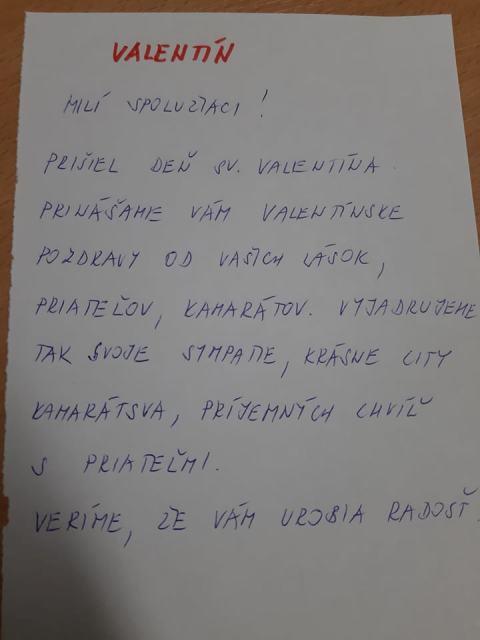 VALENTÍN
MILÍ SPOLUŽIACI !
PRIŠIEL DEŇ SV. VALENTÍNA.
PRINÁŠAME VÁM VALENTÍNSKE
POZDRAVY OD VAŠICH LÁSOK,
PRIATEĽOV, KAMARÁTOV. VYJADRUJEME
TAK SVOJE SYMPATIE, KRÁSNE CITY
KAMARÁTSVA, PRÍJEMNÝCH CHVÍĽ
S PRIATEĽMI.
VERÍME, ŽE VÁM UROBIA RADOSŤ.